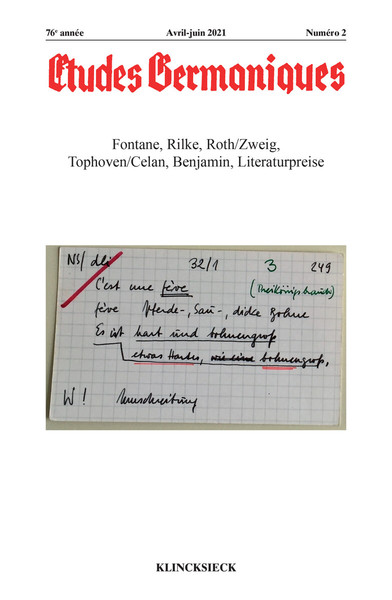 76e année Avril-juin 2021 Numéro 2
Etudes Germaniques
Fontane, Rilke, Roth/Zweig,
Tophoven/Celan, Benjamin, Literaturpreise
NS/ dli 32/1 3 249
C'est une fève (Dreikönigskuchen)
fève Pferde-, Sau-, dicke Bohne
Es ist hart und bohnengroß
etwas Hartes, wie eine bohnengroß,
W! Umschreibung
KLINCKSIECK